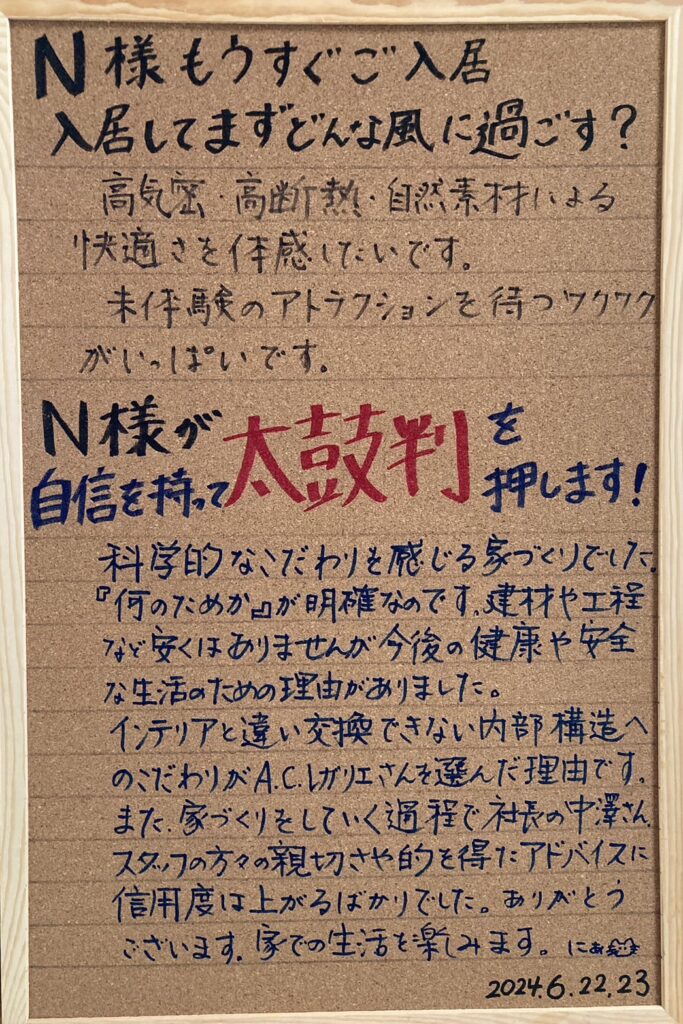 N様もうすぐご入居
入居してまずどんな風に過ごす？
高気密・高断熱・自然素材による
快適さを体感したいです。
未体験のアトラクションを待つワクワク
がいっぱいです。
N様が
自信を持って太鼓判を押します！
科学的なこだわりを感じる家づくりでした。
『何のためか』が明確なのです。建材や工程
など安くはありませんが今後の健康や安全
な生活のための理由がありました。
インテリアと違い交換できない内部構造へ
のこだわりがA.C.レガリエさんを選んだ理由です。
また、家づくりをしていく過程で社長の中澤さん、
スタッフの方々の親切さや的を得たアドバイスに
信用度は上がるばかりでした。ありがとう
ございます。家での生活を楽しみます。
2024.6.22,23